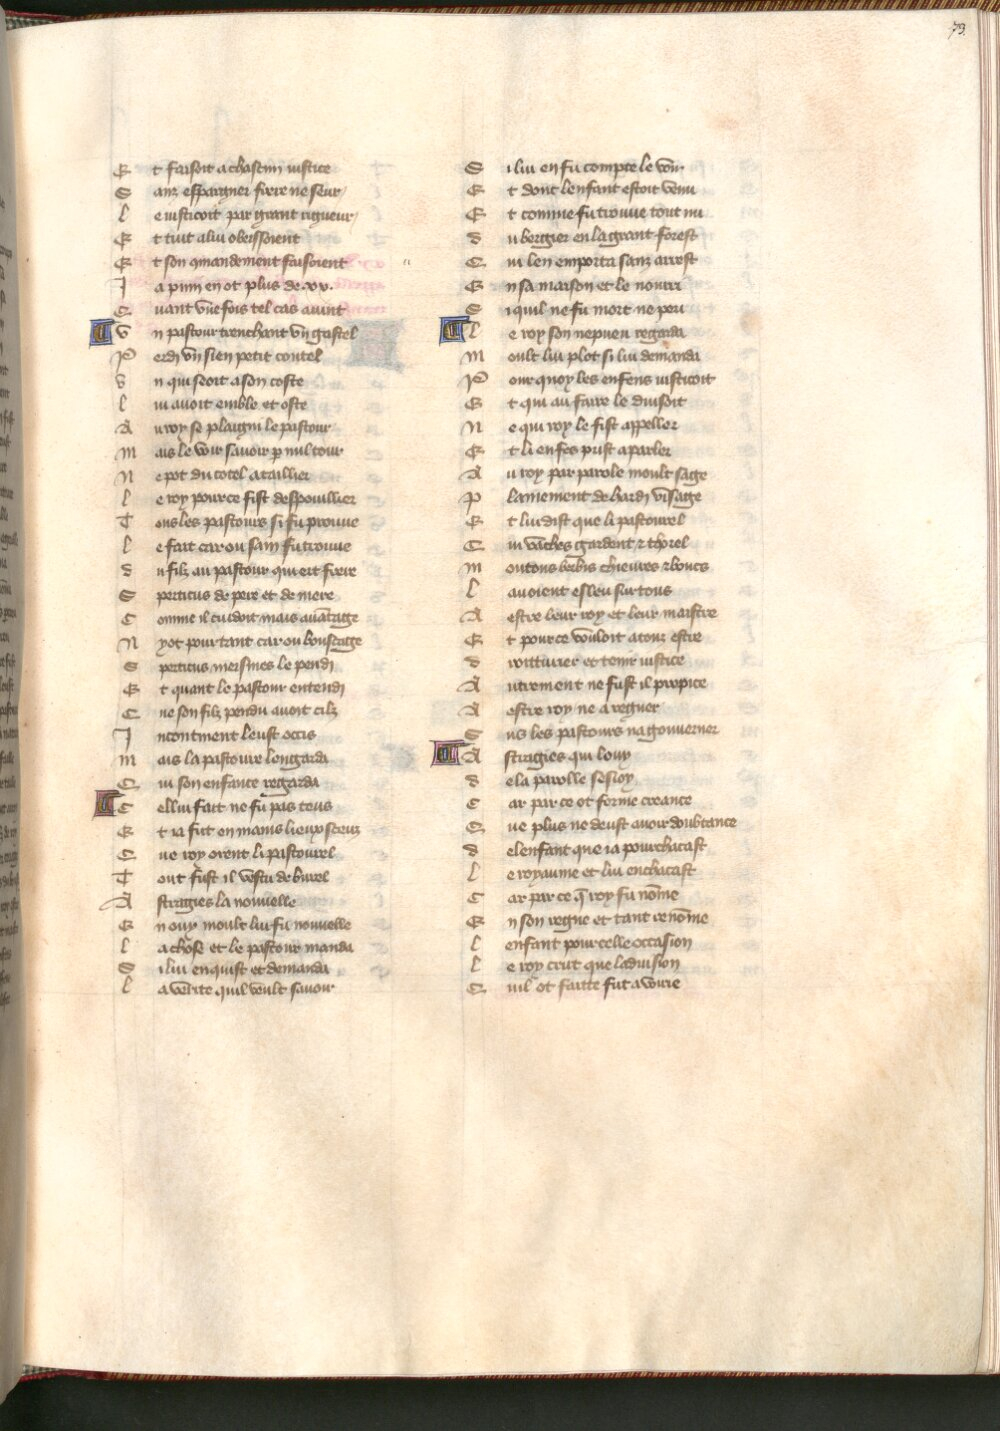 79.
Et faisoit a chascun iustice
Sanz espargner frere ne seur
Le iusticoit par grant rigueur
Et tuit a lui obeissoient
Et son qmandement faisoient
Ja puni en ot plus de xv.
Quant vne fois tel cas auint
Vn pastour trenchant vn gastel
Perdi vn sien petit coutel
Vn qui seoit a son coste
Lui auoit emble et oste
Au roy se plaigni le pastour
Mais le voir sauoir p nul tour
Ne pot du cotel a taillier
Le roy pource fist despouillier
Tous les pastours si fu prouue
Le fait car ou sain fu trouue
du filz au pastour qui ert frere
Sperticus de pere et de mere
Comme il cuidoit mais auātage
Ny ot pour tant car ou bouscage
Sperticus meismes le pendi
Et quant le pastour entendi
Que son filz pendu auoit cilz
Incontinent leust occis
Mais la pastoure len garda
Qui son enfance regarda
Cellui fait ne fu pas teus
Et ia fut en mains lieux sceuz
Que roy orent li pastourel
Tout fust il vestu de burel
Astragies la nouuelle
En ouy moult lui fu nouuelle
La chose et le pastour manda
Si lui enquist et demanda
La verite quil voult sauoir
Si lui en fu compte le voir
Et dont lenfant estoit venu
Et comme fu trouue tout nu
du bergier en la grant forest
Qui len emporta sanz arrest
En sa maison et le nourri
Si quil ne fu mort ne peri
Le roy son nepueu regarda
Moult lui plot si lui demanda
Pour quoy les enfens iusticoit
Et qui au faire le duisoit
Ne qui roy le fist appeller
Et li enfes prist a parler
Au roy par parole moult sage
Plainement de hardi visage
Et lui dist que li pastourel
Qui vaches gardent et thorel
Moutons brebis chieures et boucs
Lauoient esleu sur tous
A estre leur roy et leur maistre
Et pource vouloit a touz estre
droitturier et tenir iustice
Autrement ne fust il propice
A estre roy ne a regner
Sus les pastours na gouuerner
Astragies qui louy
de la parolle sesioy
Car par ce ot ferme creance
Que plus ne deust auoir doubtance
de lenfant que ia pourchacast
Le royaume et lui enchacast
Car par ce q̄ roy fu nōme
En son regne et tant renōme
Lenfant pour celle occasion
Le roy crut que la diuision
Quil ot faitte fut auoire